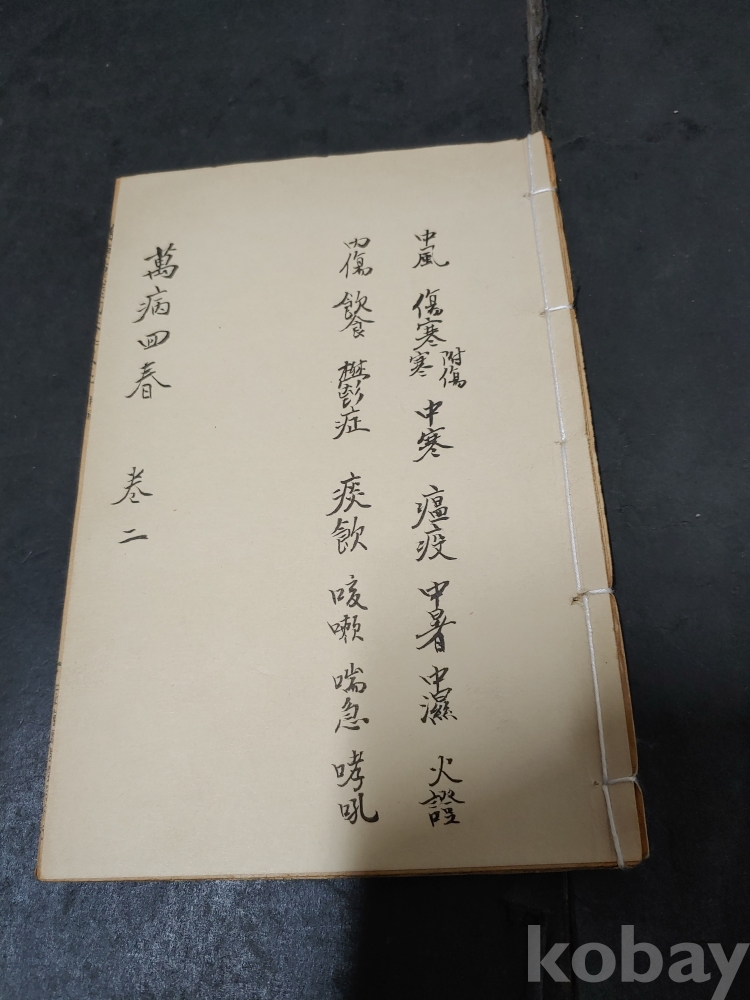 中風 傷寒 附傷寒 中寒 瘟疫 中暑 中濕 火證
內傷 飲食 鬱症 痰飲 咳嗽 喘急 哮吼
萬病回春 卷二
kobay